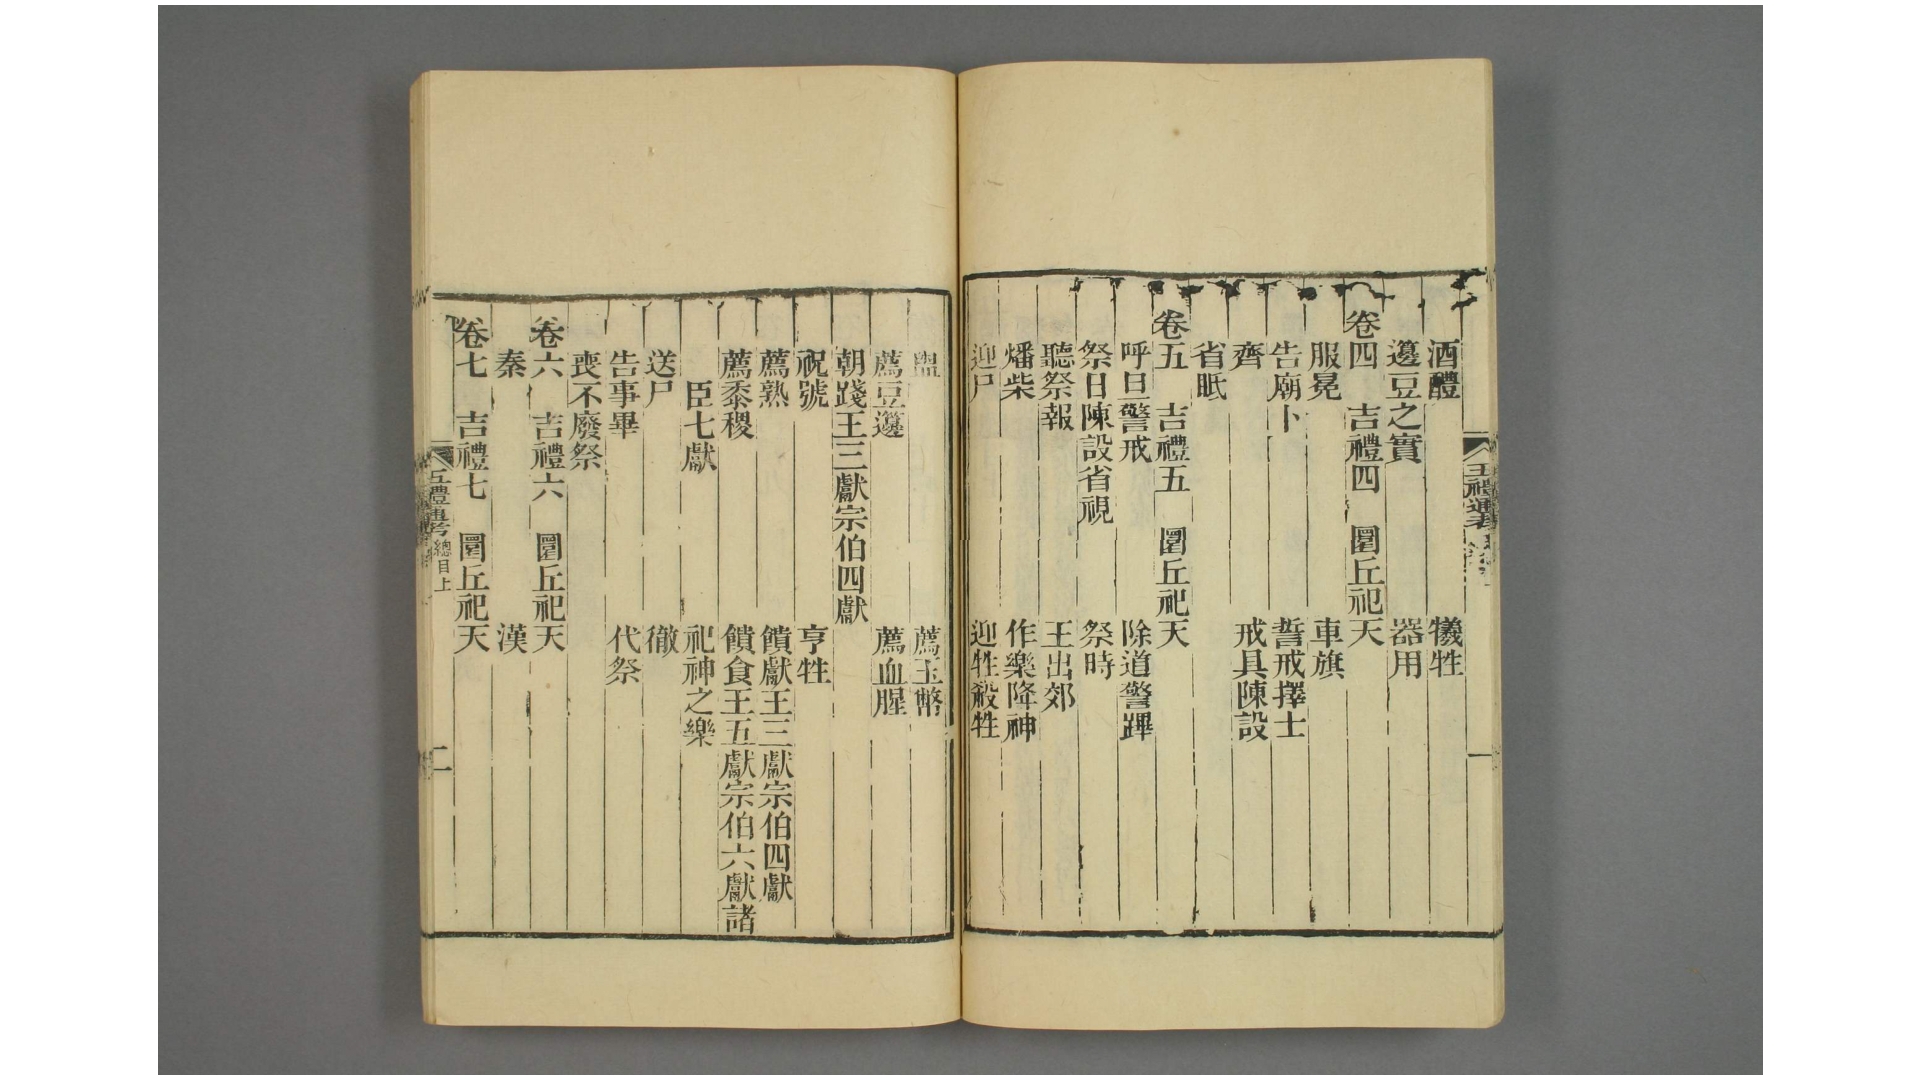 酒醴 犧牲
籩豆之實 器用
卷四 吉禮四 圜丘祀天
服冕 車旗
告廟卜 誓戒擇士
齊 戒具陳設
省眂
卷五 吉禮五 圜丘祀天
呼旦警戒 除道警蹕
祭日陳設省視 祭時
聽祭報 王出郊
燔柴 作樂降神
迎尸 迎牲殺牲
盥 薦玉幣
薦豆籩 薦血腥
朝踐王三獻宗伯四獻
祝號 亨牲
薦熟 饋獻王三獻宗伯四獻
薦黍稷 饋食王五獻宗伯六獻諸
臣七獻 祀神之樂
送尸 徹
告事畢 代祭
喪不廢祭
卷六 吉禮六 圜丘祀天
秦 漢
卷七 吉禮七 圜丘祀天
五禮通考 總目上 二